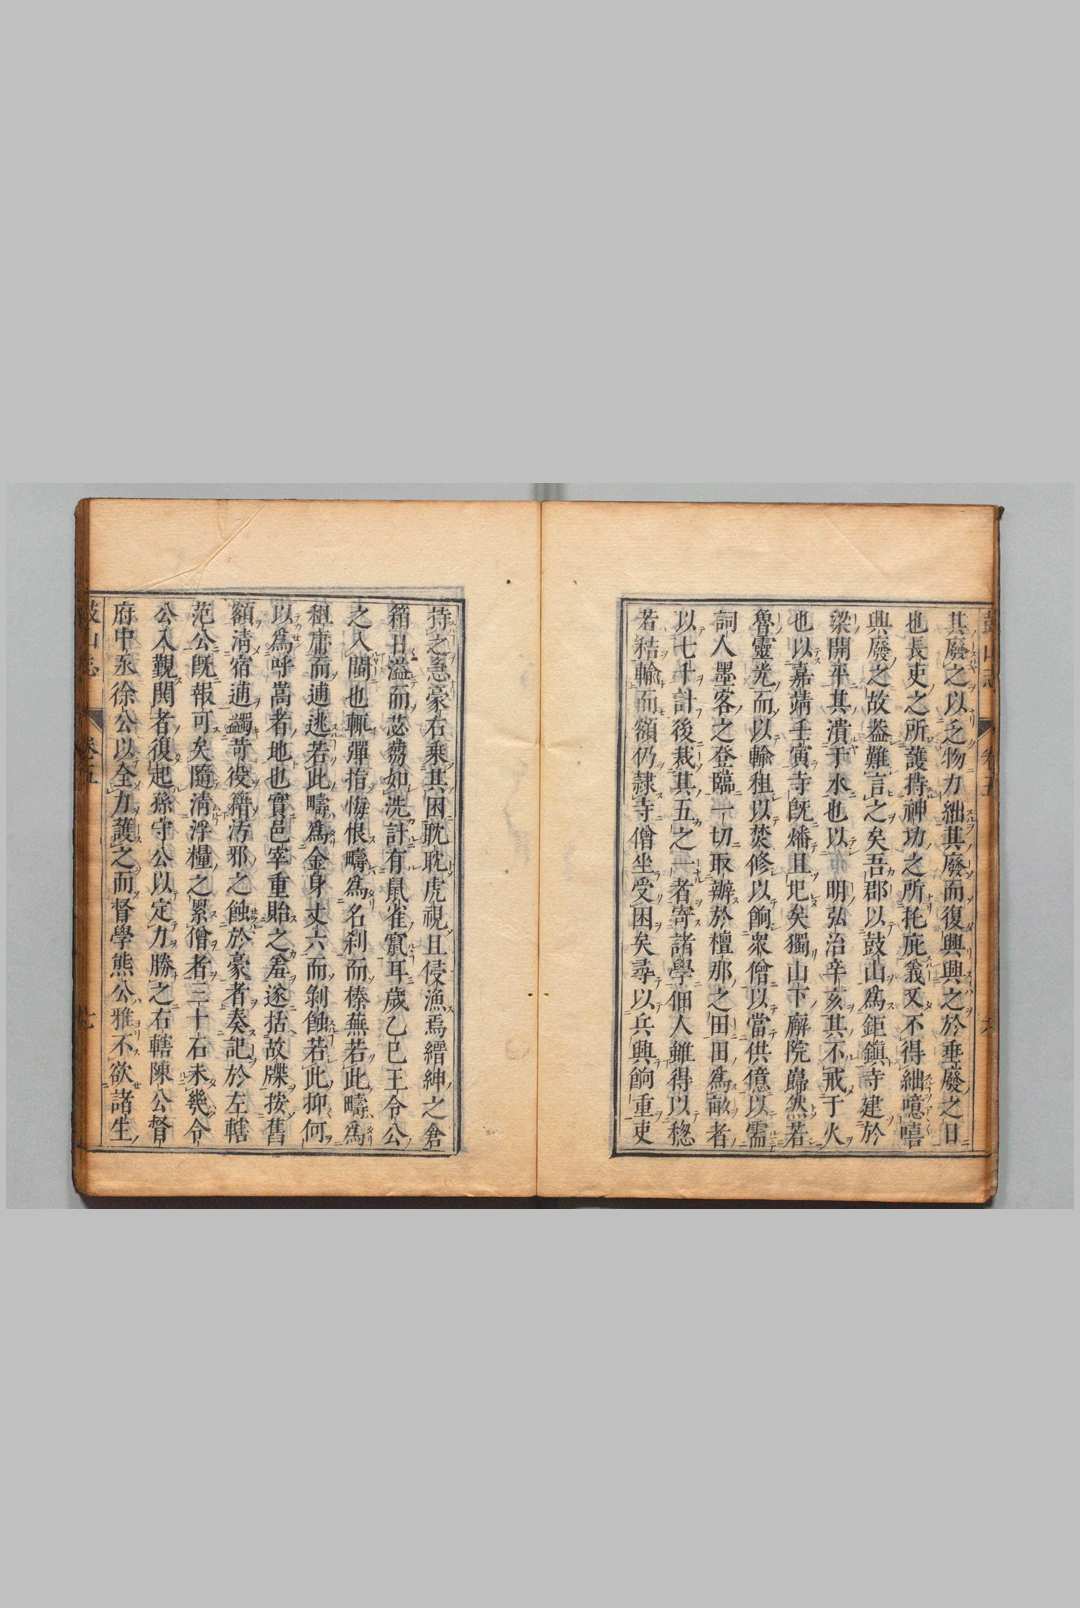 其廢之以乏物力絀其廢而復興興之於垂廢之日
也長吏之所護持神功之所扥庇義又不得絀噫嘻
興廢之故葢難言之矣吾郡以鼓山為鉅鎮寺建於
梁開平其潰于水也以 明弘治辛亥其不戒于火
也以嘉靖壬寅寺旣燔且圯矣獨山下廨院巋然若
魯靈光而以輸租以焚修以餉衆僧以當供億以需
詞人墨客之登臨一切取辦於檀那之田田為畝者
以七千計後裁其五之一者寄諸學佃人雖得以
若秸輸而額仍隷寺僧坐受困矣尋以兵興餉重吏
持之急豪右乗其困眈眈虎視且侵漁焉縉紳之倉
箱日溢而苾蒭如洗計有鼠雀竄耳歲乙巳王令公
之入閩也輒彈指悔恨疇為名刹而榛蕪若此疇為
租庸而逋逃若此疇為金身丈六而剝蝕若此抑何
以為呼嵩者地也實邑宰重貽之羞遂括故牒按舊
額清宿逋蠲苛役籍汸邪之蝕於豪者奏記於左轄
范公旣報可矣隨清浮糧之累僧者三十石未幾令
公入覲閱者復起孫守公以定力勝之右轄陳公督
府中丞徐公以全力護之而督學熊公雅不欲諸生
鼓山志 卷五 七